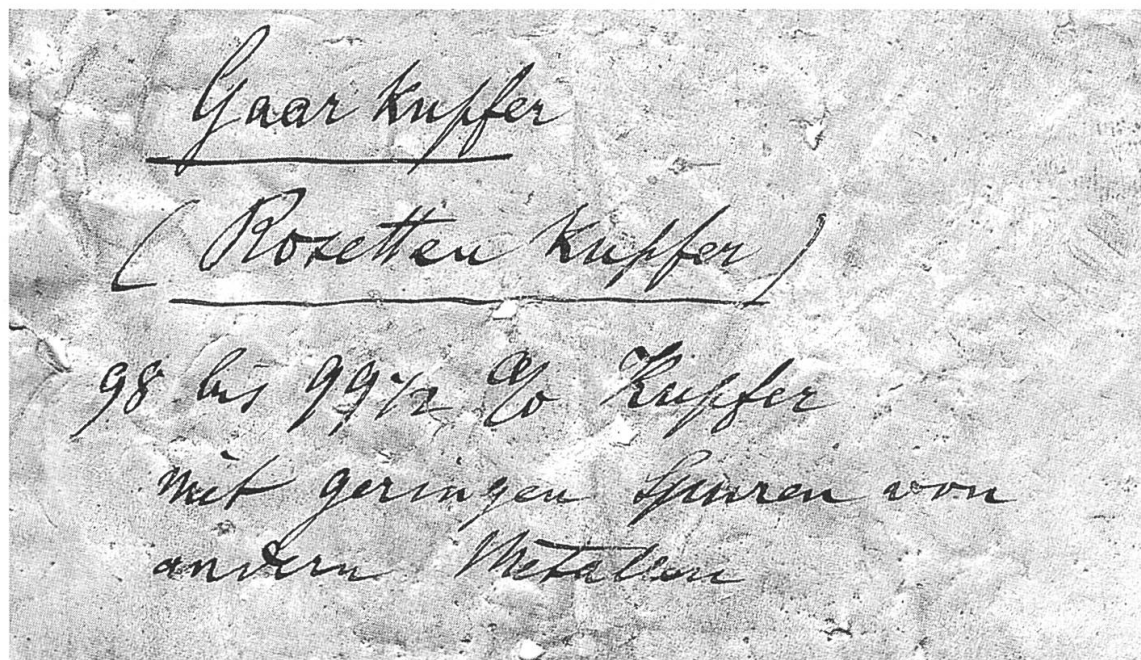 Gaar Kupfer
(Rosetten Kupfer)
98 bis 99 1/2 % Kupfer
mit geringen Spuren von
andern Metallen